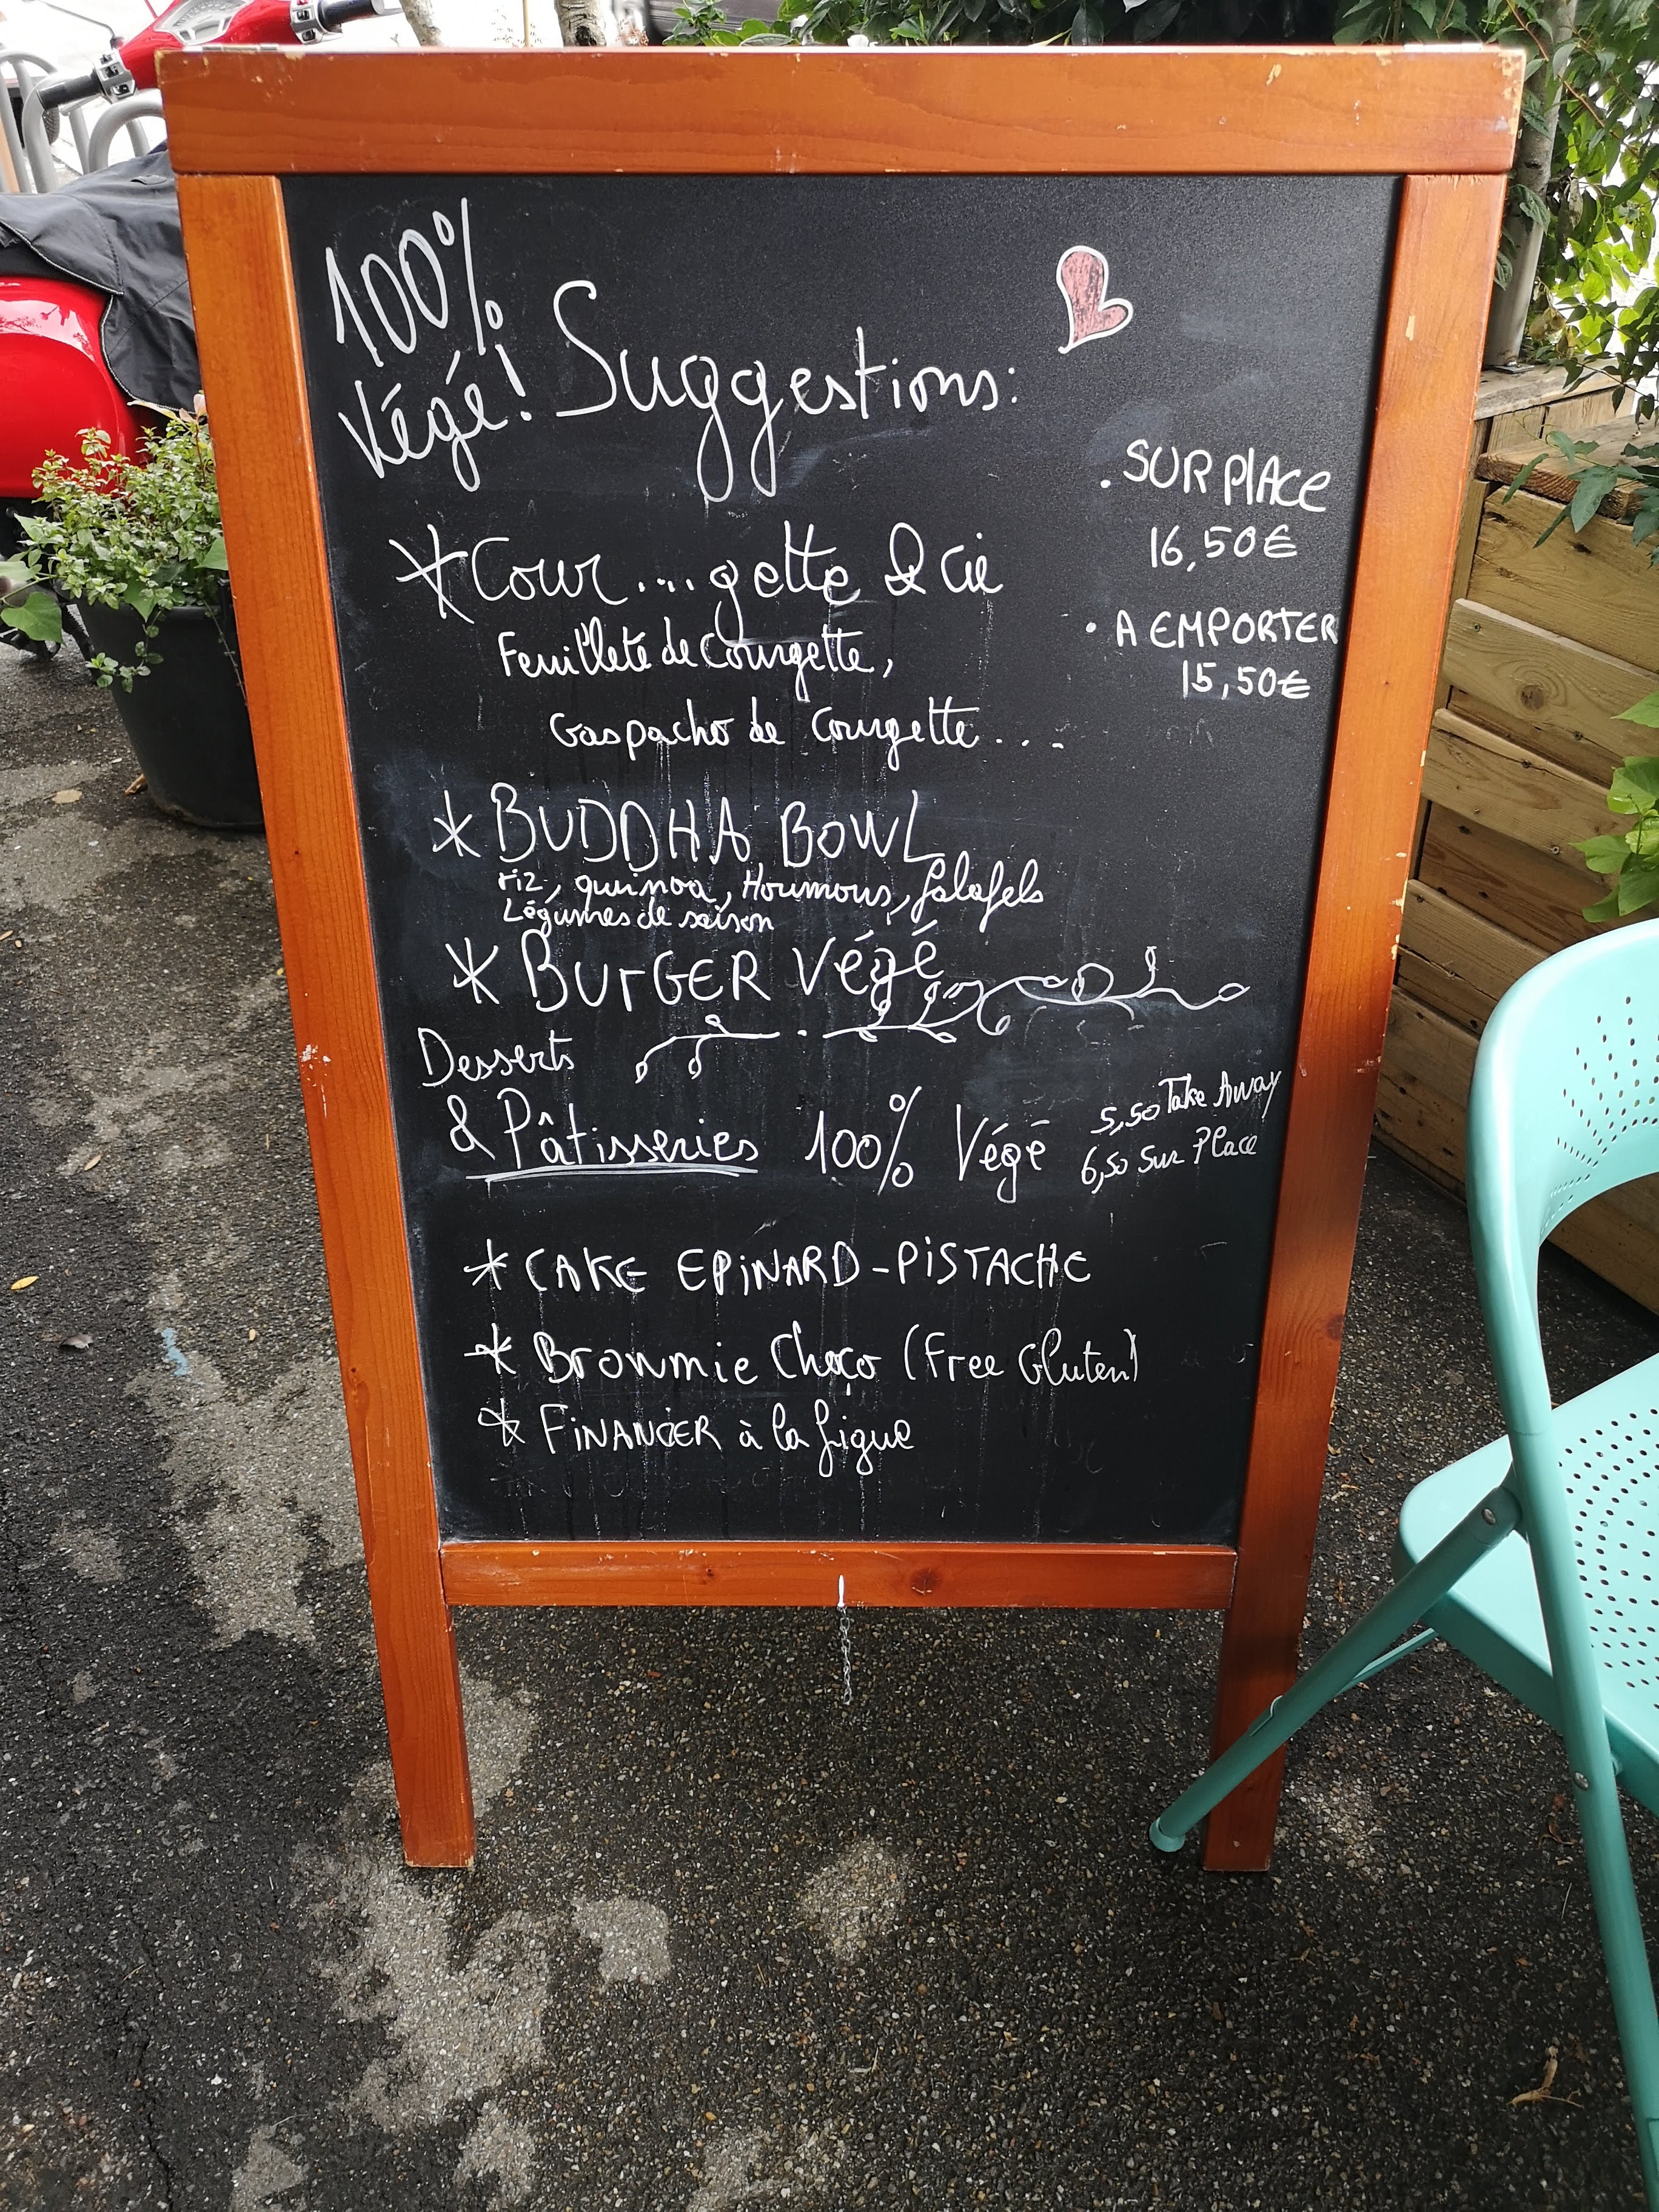 100%
Végé!
Suggestions:
. SUR PLACE
16,50€
• A EMPORTER
15,50€
* Cour....gette & Cie
Feuilleté de Courgette,
Gaspacho de Courgette....
* BUDDHA BOWL
riz, quinoa, Houmous, falafels
Légumes de saison
* BURGER Végé
Desserts
& Pâtisseries 100% Végé
5,50 Take Away
6,50 Sur Place
* CAKE EPiNARD-PiSTACHE
* Brownie Choco (Free Gluten)
* FiNANCiER à la figue